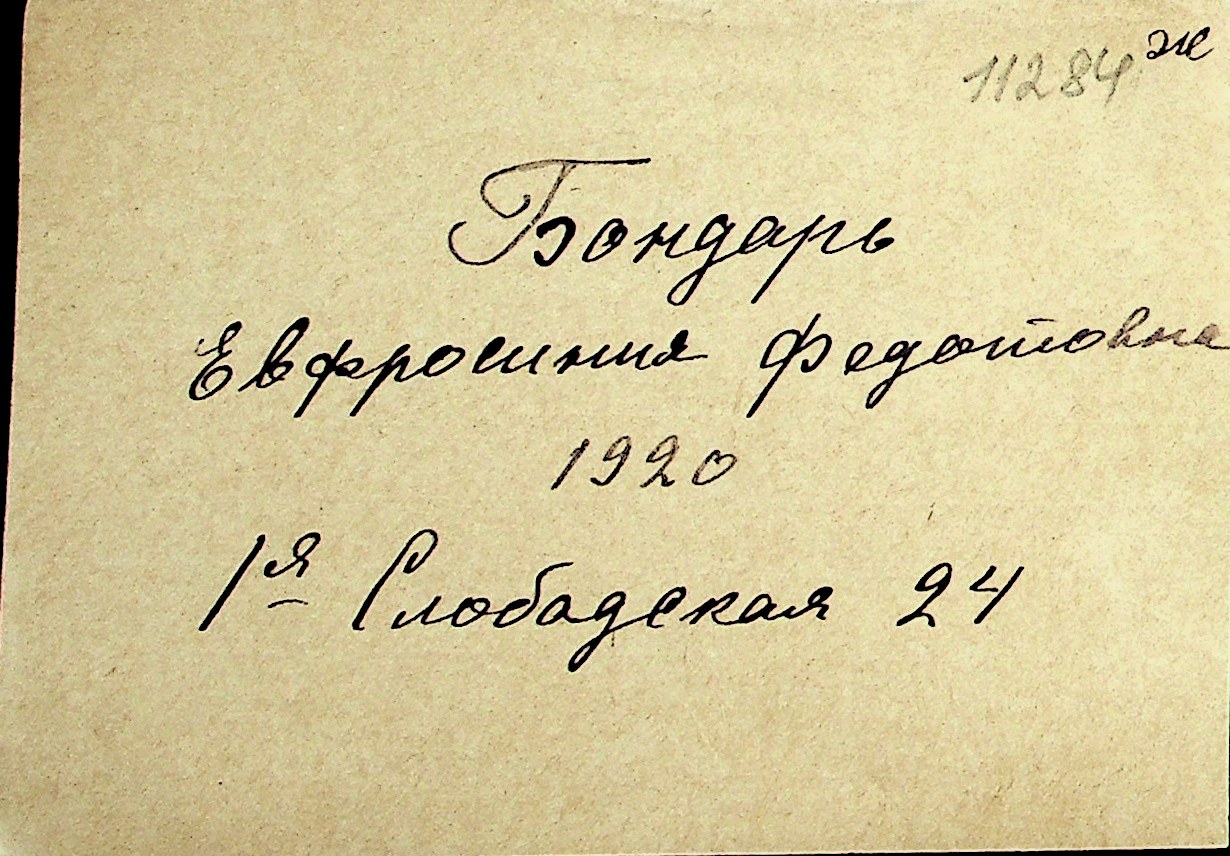 11284 ж
Бондарь
Евфросиния Федотовна
1920
1я Слободская 24